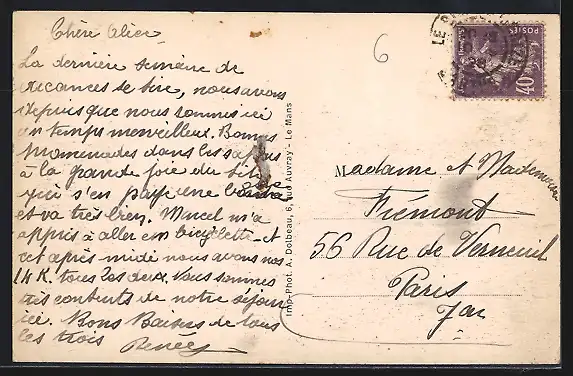 Chère Alice
La dernière semaine de
vacances se tire, nous avons
depuis que nous sommes ici
un temps merveilleux. Bonnes
promenades dans les sapins
à la grande joie de
qui s'en paye une bosse
et va très bien. Marcel m'a
appris à aller en bicyclette et
cet après midi nous avons fait
14 K. tous les deux. Nous sommes
très contents de notre séjour
ici. Bons Baisers de tous
les trois
Renée
Imp-Phot. A. Dolbeau, 6, rue Auvray - Le Mans
6
LE
POSTES
40c
Madame et Mademoiselle
Frémont
56 Rue de Verneuil
Paris
7ar